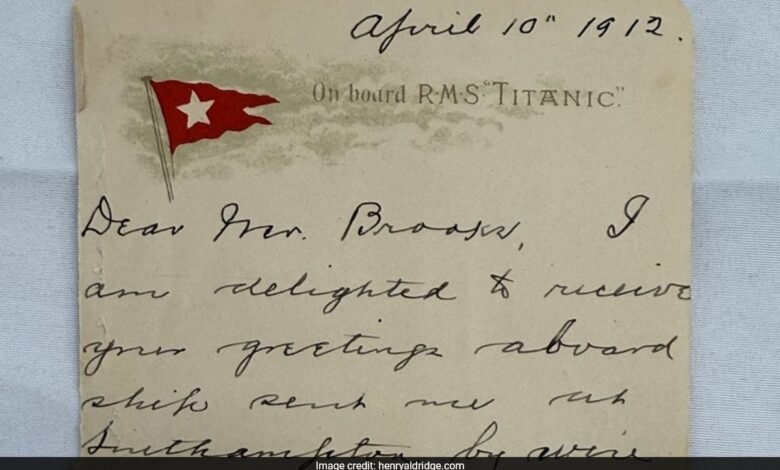 April 10" 1912.
On board R·M·S "TITANIC".
Dear Mr. Brooks, I
am delighted to receive
your greetings aboard
ship sent me at
Southampton by wire
Image credit: henryaldridge.com